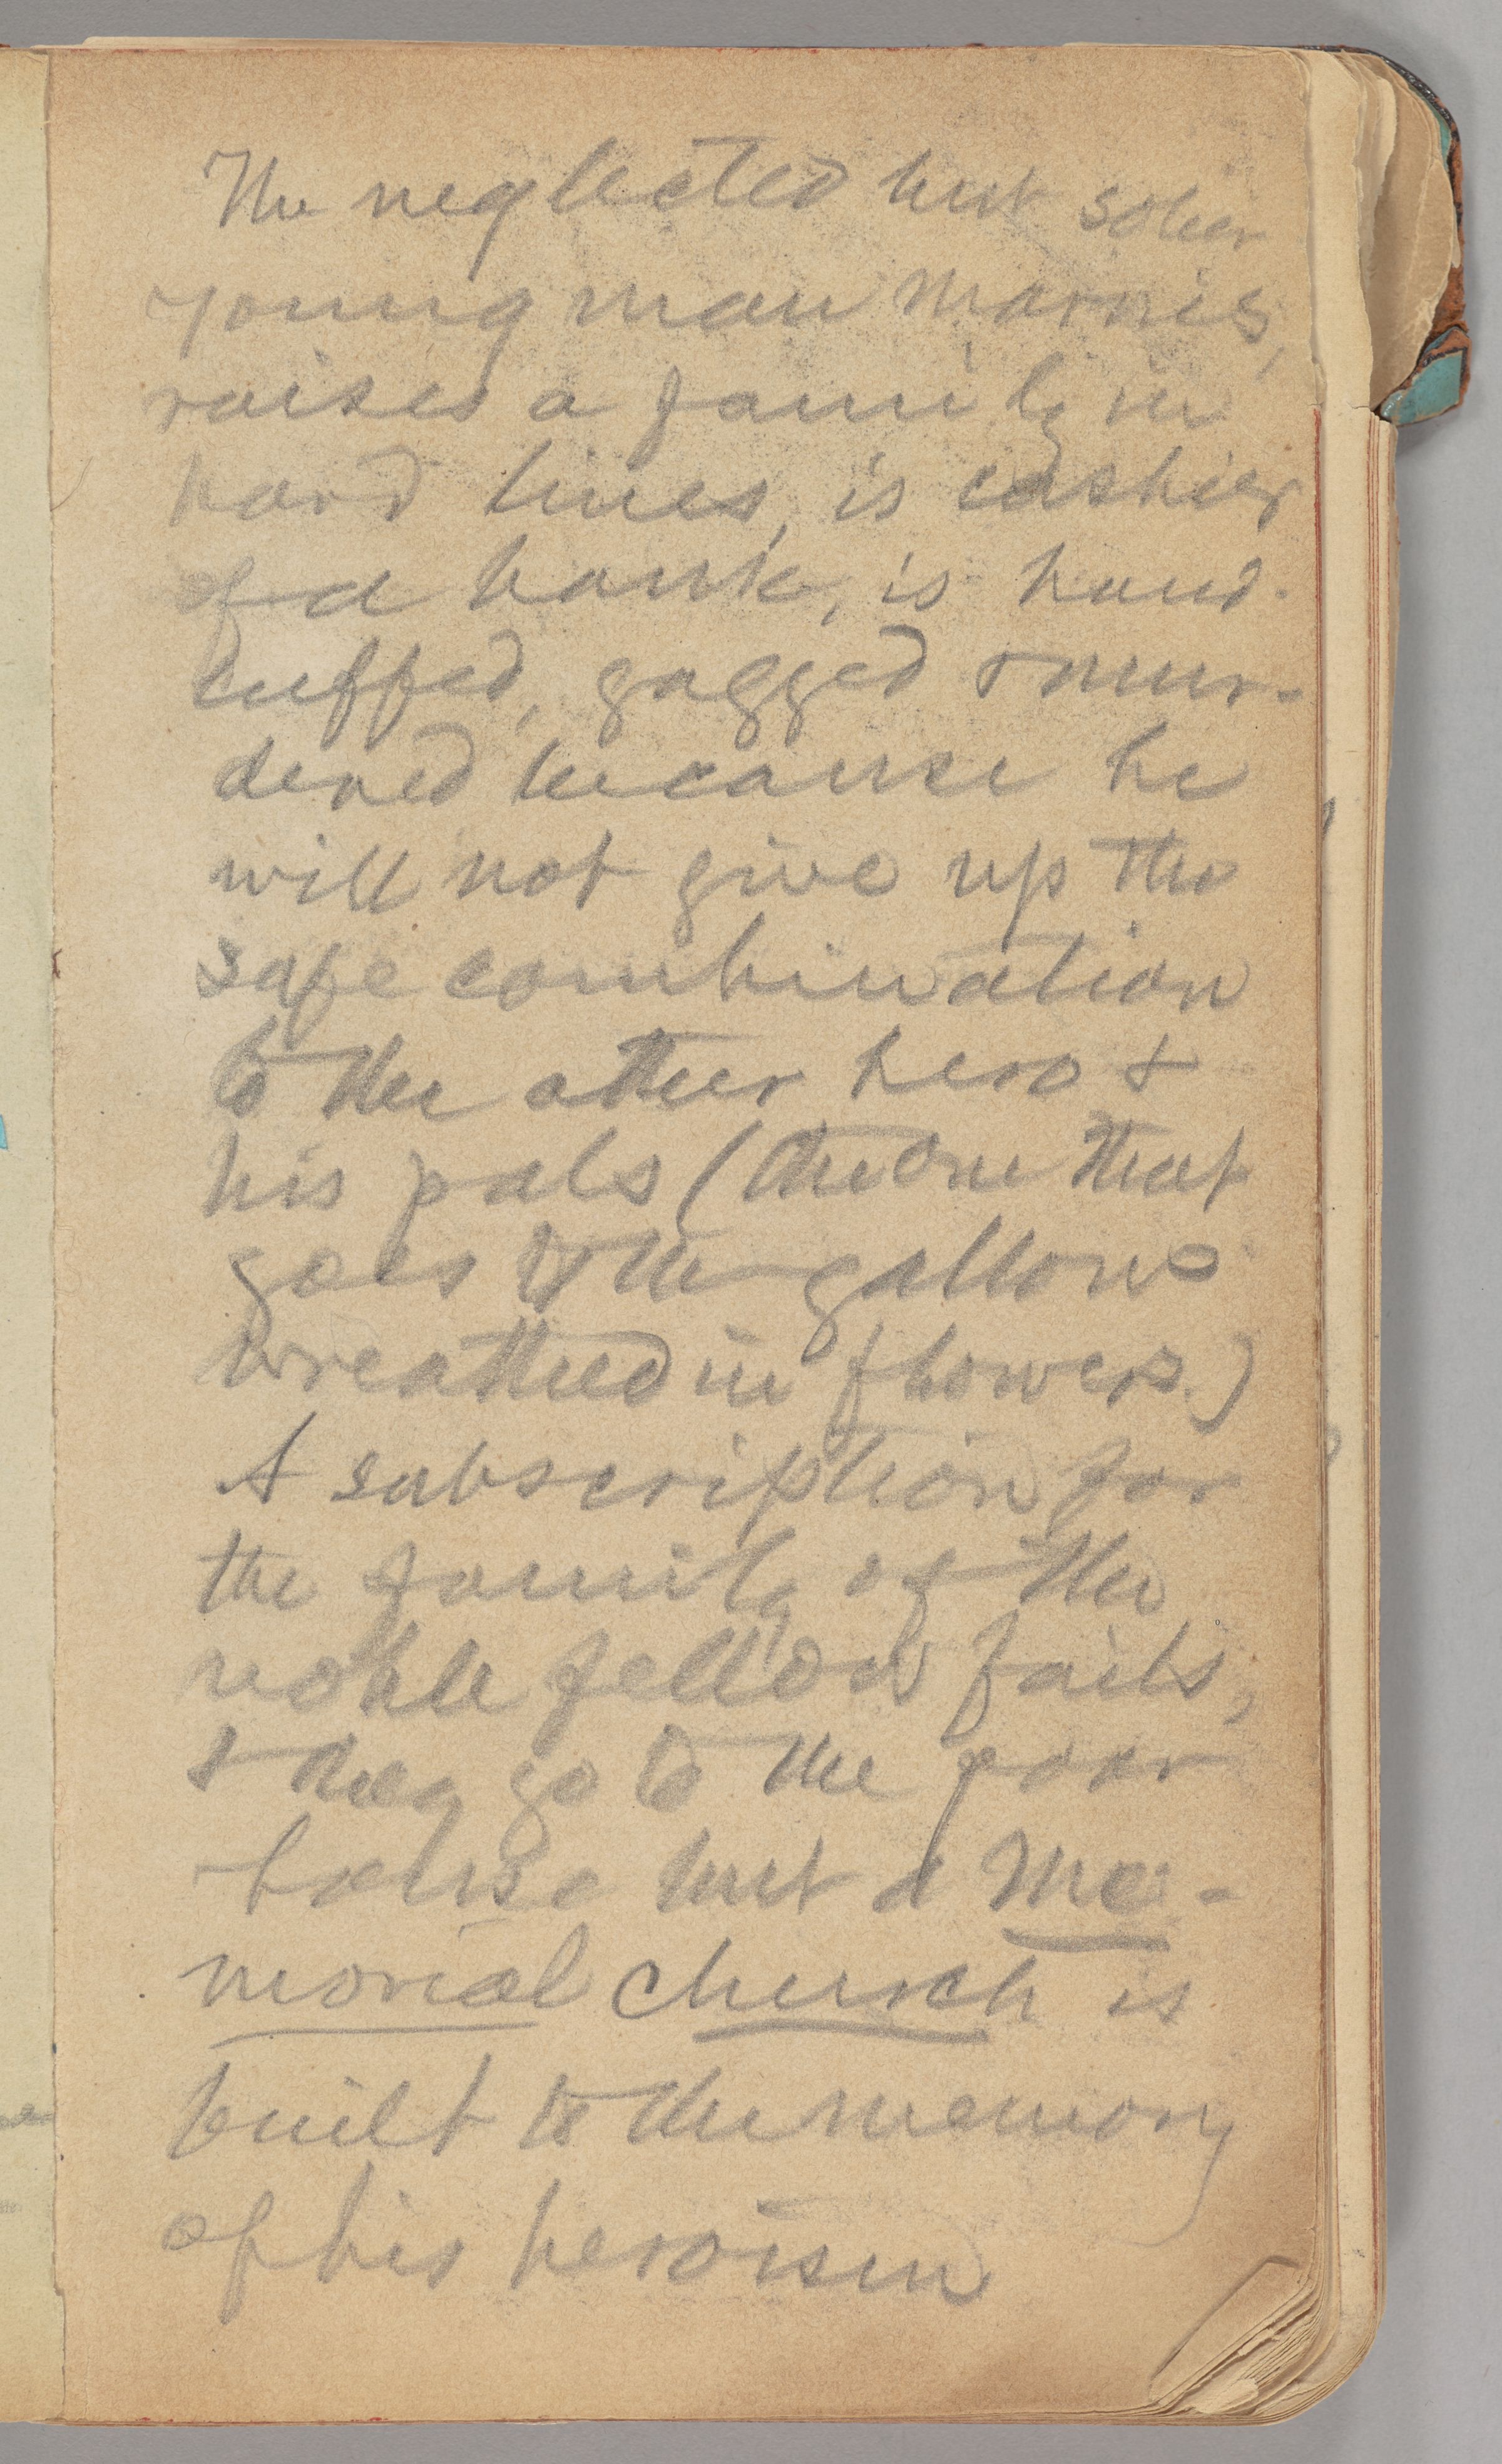 The neglected but sober
young man marries,
raises a family in
hard lines, is cashier
of a bank, is hand-
cuffed, gagged & mur-
dered because he
will not give up the
safe combination
to the other hero &
his pals (the one that
goes to the gallows
wreathed in flowers.)
A subscription for
the family of the
noble fellow fails,
& they go to the poor
house but a me-
morial church is
built to the memory
of his heroism